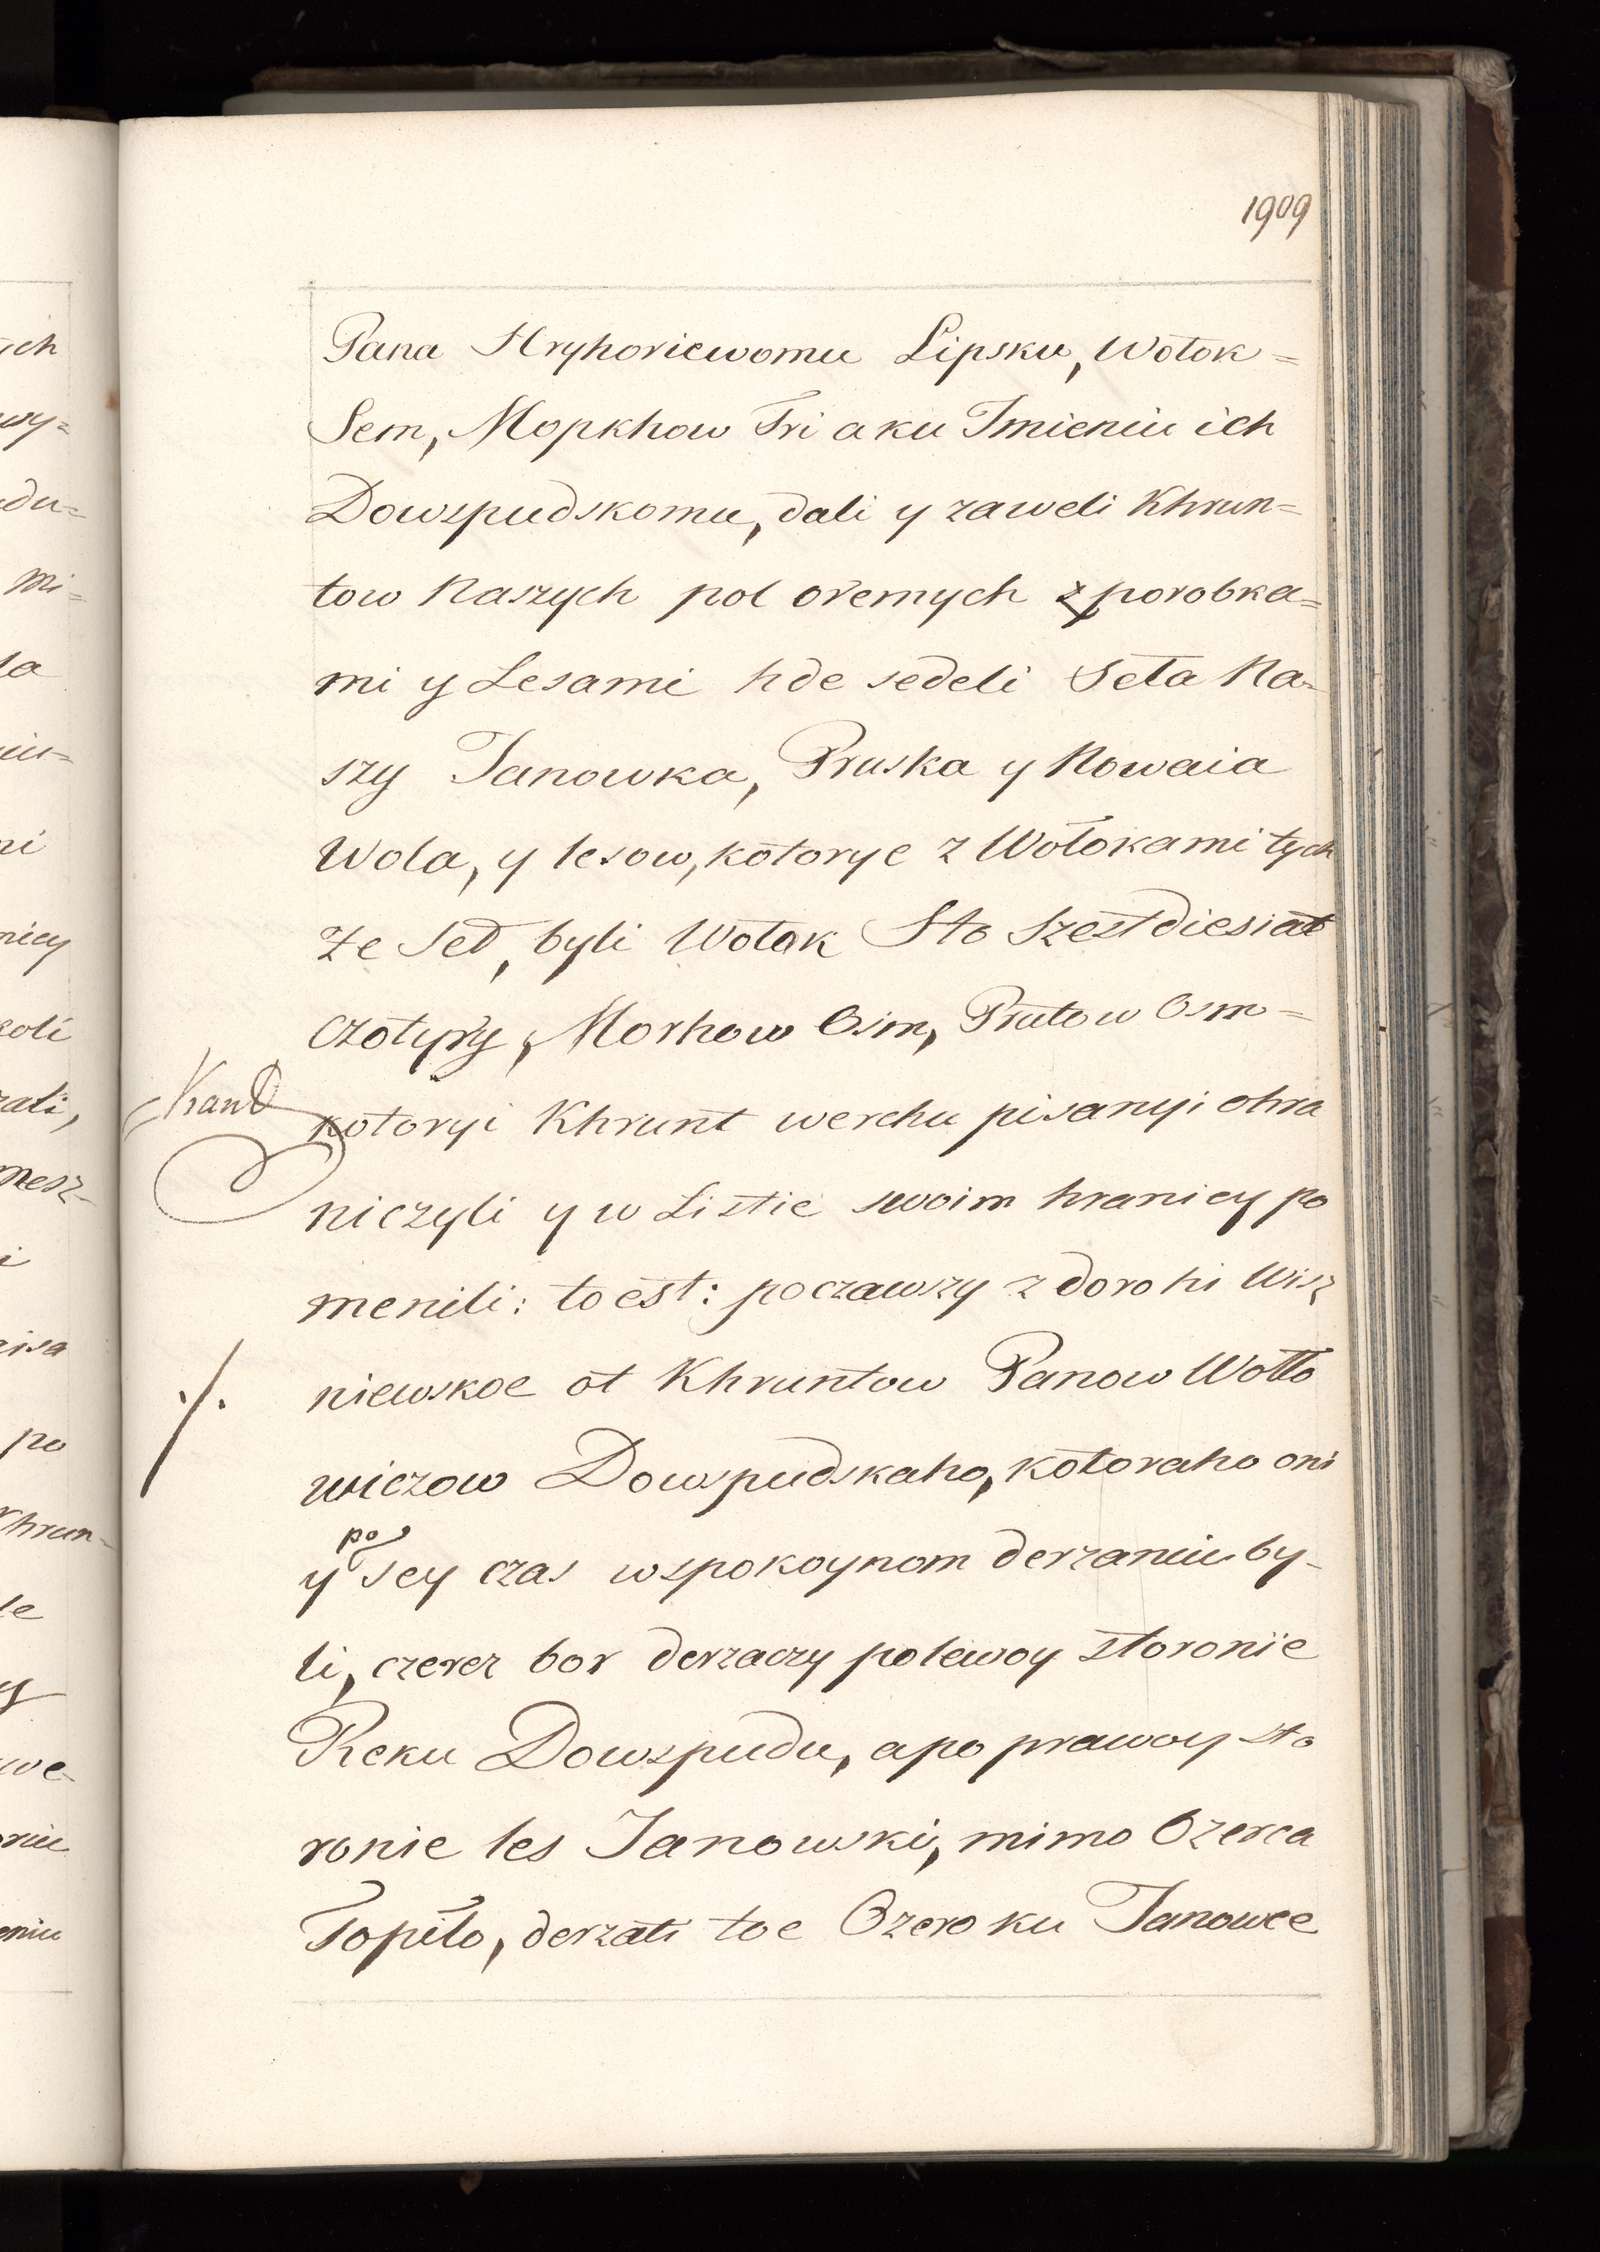 1909
Pana Hryhoriewomu Lipsku, Wołok=
Sem, Mopkhow Tri a ku Imieniu ich
Dowspudskomu, dali y zaweli Khrun=
tow Naszych pol oremych z porobka=
mi y Lesami hde sedeli Seła Na=
szy Janowka, Pruska y Nowaia
Wola, y lesow, kotorye z Wołokami tych
że Seł, byli Wołok Sto Szestdiesiat
czotyry, Morhow Osm, Prutow Osm=
kotoryi Khrunt werchu pisanyi ohra
niczyli y w Listie swoim hranicy po
menili: to est: poczawszy z dorohi Wisz
niewskoe ot Khruntow Panow Wołło
wiczow Dowspudskaho, kotoraho oni
y po sey czas w spokoynom derzaniu by=
li, czerez bor derzaczy po lewoy storonie
Reku Dowspudu, a po prawoy sto
ronie les Janowski, mimo Ozerca
Topiło, derzati toe Ozero ku Janowce
./.
ich
wy=
du=
Mi=
ła
ni
nicy
koli
zati,
mesz=
i
pisa
po
Khrun=
le
we=
eniu